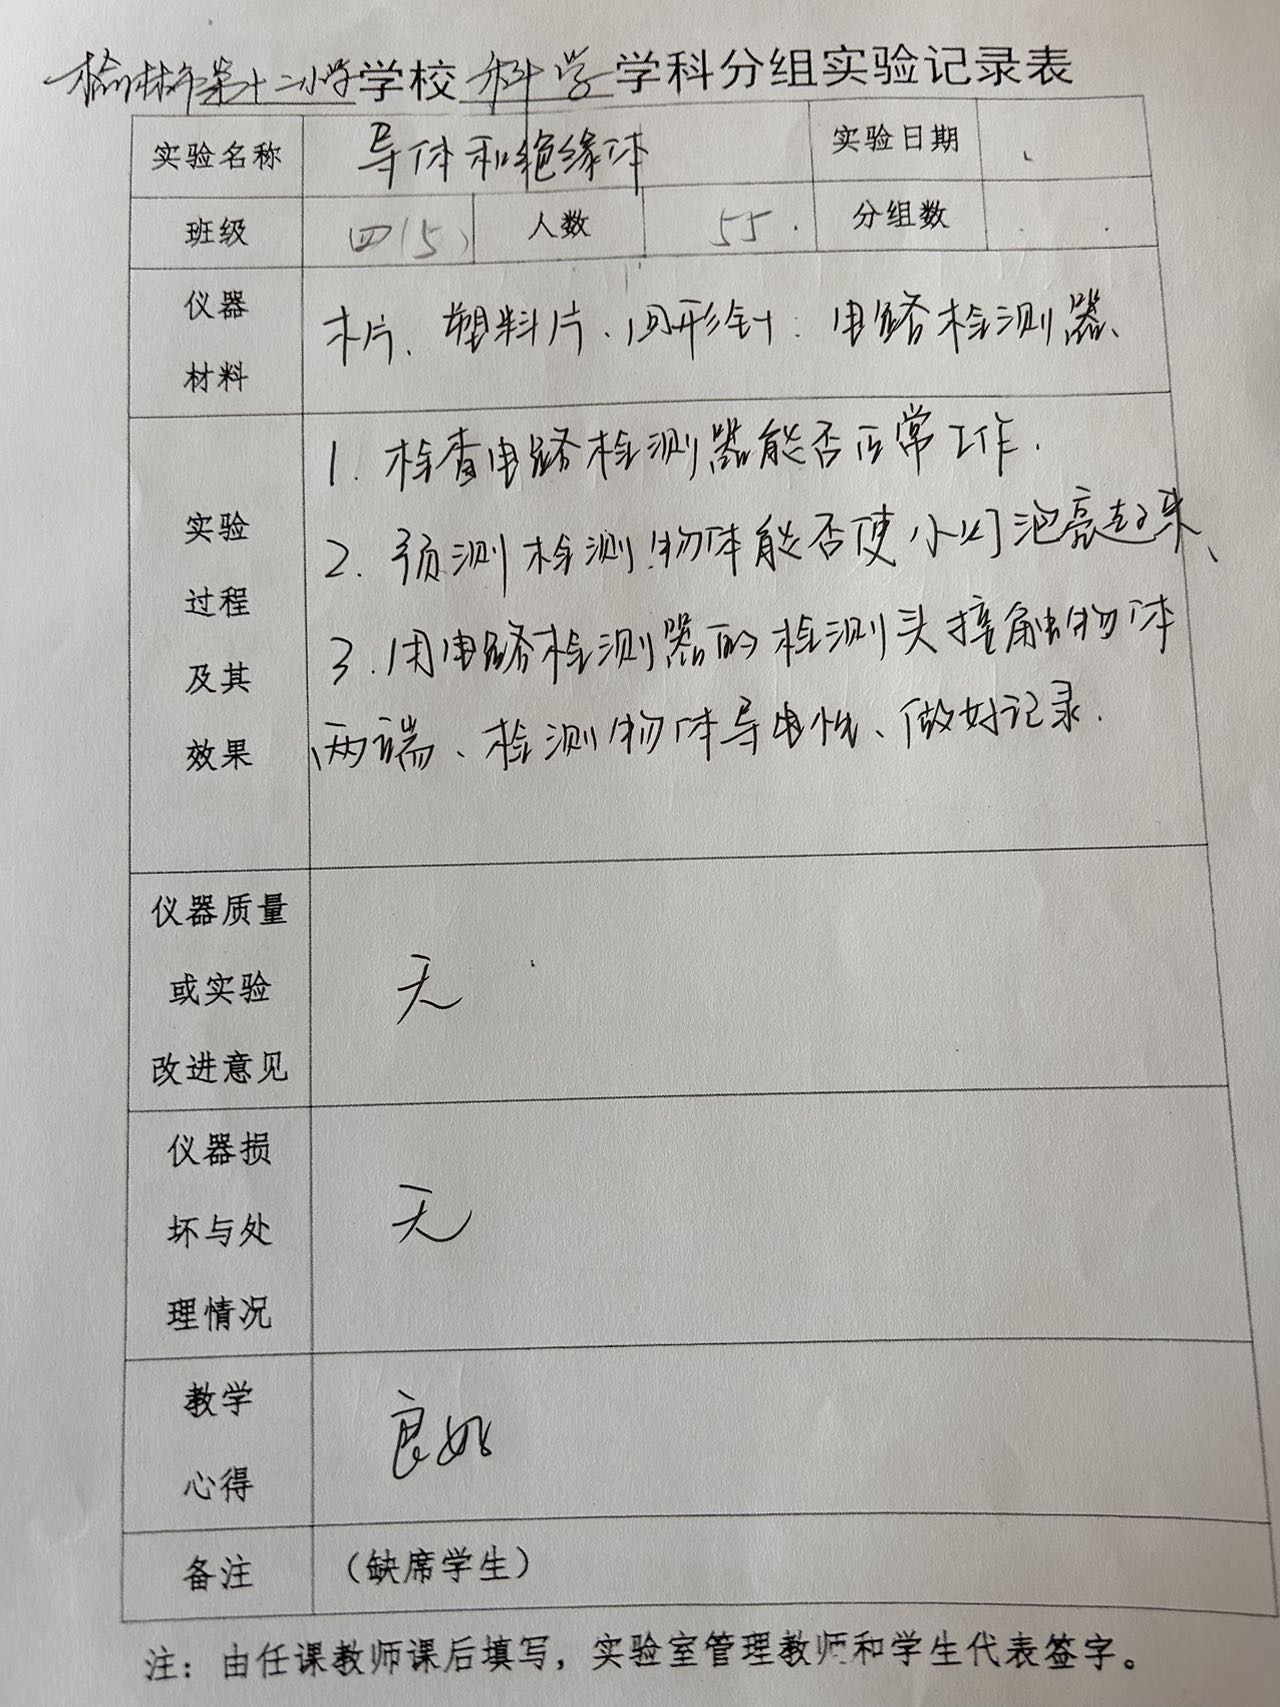 榆林市第十二小学学校科学学科分组实验记录表
实验名称 导体和绝缘体 实验日期
班级 四(5) 人数 55. 分组数
仪器
材料
木片、塑料片、回形针、电路检测器、
实验
过程
及其
效果
1. 检查电路检测器能否正常工作.
2. 预测检测物体能否使小灯泡亮起来、
3. 用电路检测器的检测头接触物体
两端、检测物体导电性、做好记录.
仪器质量
或实验
改进意见
无
仪器损
坏与处
理情况
无
教学
心得
良好
备注 (缺席学生)
注：由任课教师课后填写，实验室管理教师和学生代表签字。